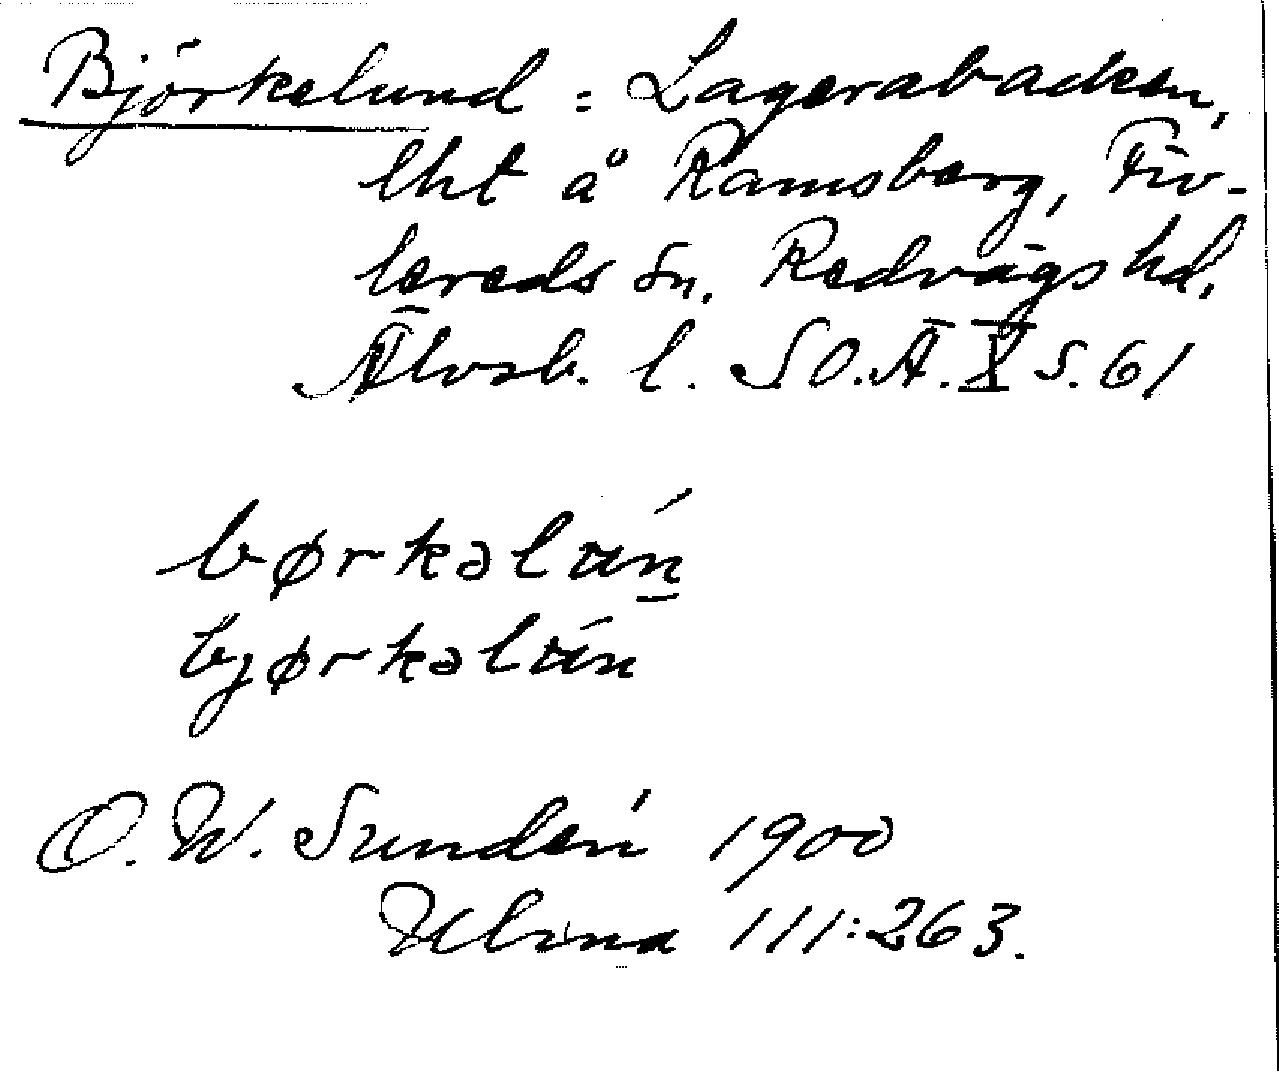 Björkelund = Lagerabacken,
lht å Ramsberg, Fiv-
lereds sn, Redvägs hd,
Älvsb. l. SO.Ä.X s. 61
børkəlún
bjørkəlún
O. W. Sundén 1900
111:263.